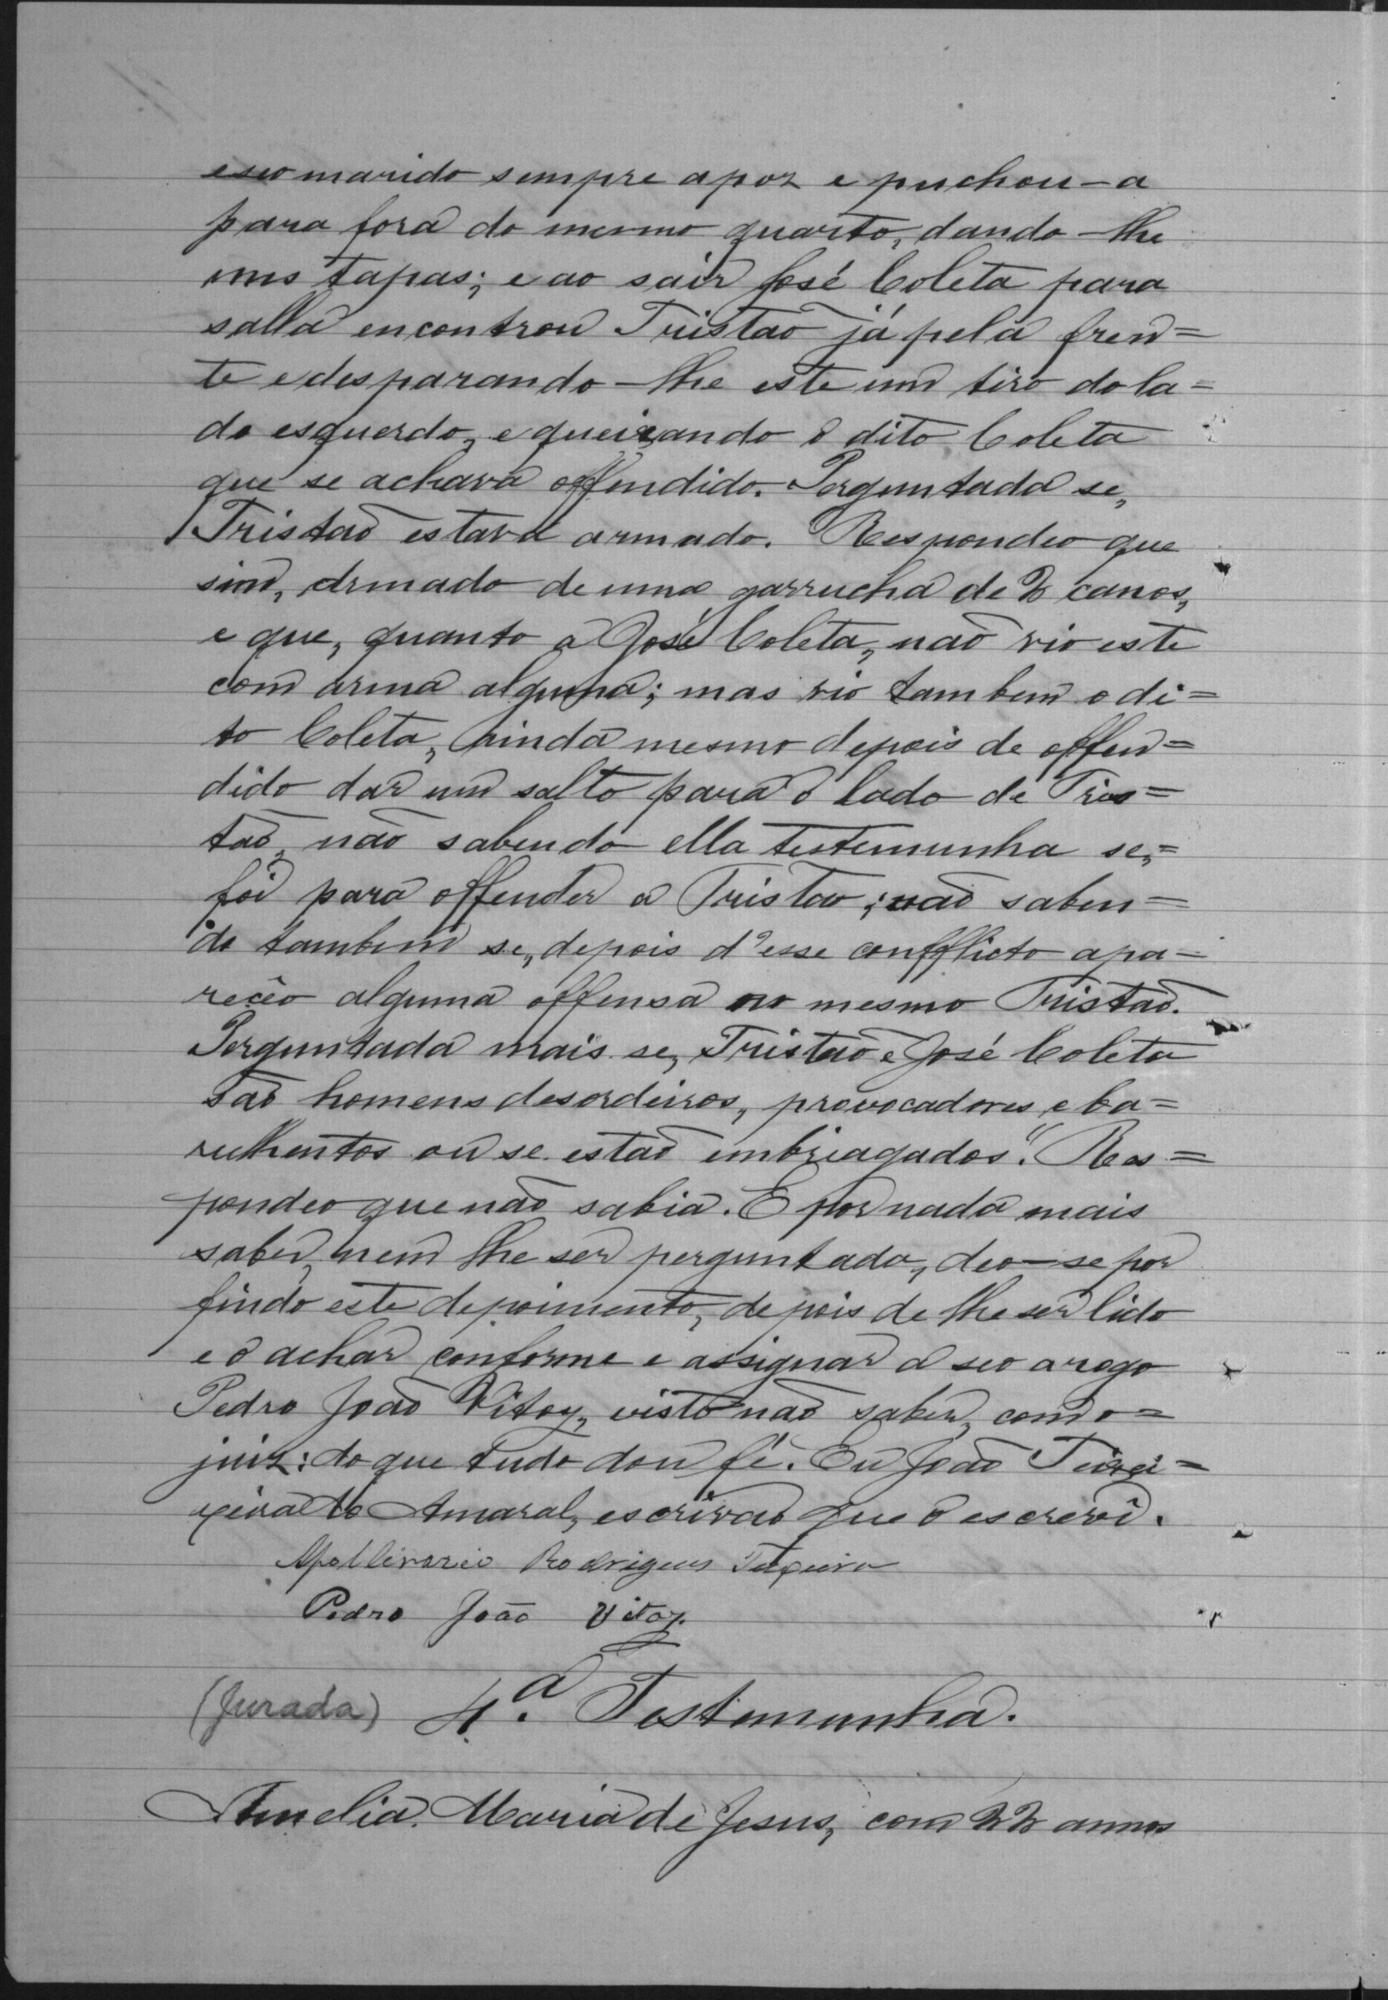 e seo marido sempre apoz e puchou-a
para fora do mesmo quarto, dando-lhe
uns tapas; e ao sair José Coleta para
salla encontrou Tristão já pela fren=
te e desparando-lhe este um tiro do la=
do esquerdo, e queixando o dito Coleta
que se achava offendido. Perguntada se,
Tristão estava armado. Respondeo que
sim, armado de uma garrucha de 2 canos,
e que, quanto a José Coleta, não vio este
com arma alguma; mas vio tambem o di=
to Coleta, ainda mesmo depois de offen=
dido dar um salto para o lado de Tris=
tão, não sabendo ella testemunha se,=
foi para offender a Tristão; não saben=
do tambem se, depois d'esse confflicto apa=
receo alguma offensa no mesmo Tristão.
Perguntada mais se, Tristão e José Coleta
são homens desordeiros, provocadores e ba=
rulhentos ou se estão embriagados". Res=
pondeo que não sabia. E por nada mais
saber, nem lhe ser perguntado, deo-se por
findo este depoimento, depois de lhe ser lido
e o achar conforme e assignar a seo arogo
Pedro João Vitoy, visto não saber, com o=
juiz: do que tudo dou fé. Eu João Teixei=
xeira do Amaral, escrivão que o escrevi.
Apollinario Rodrigues Teixeira
Pedro João Vitoy.
(Jurada) 4.ª Testemunha.
Amelia Maria de Jesus, com 22 annos